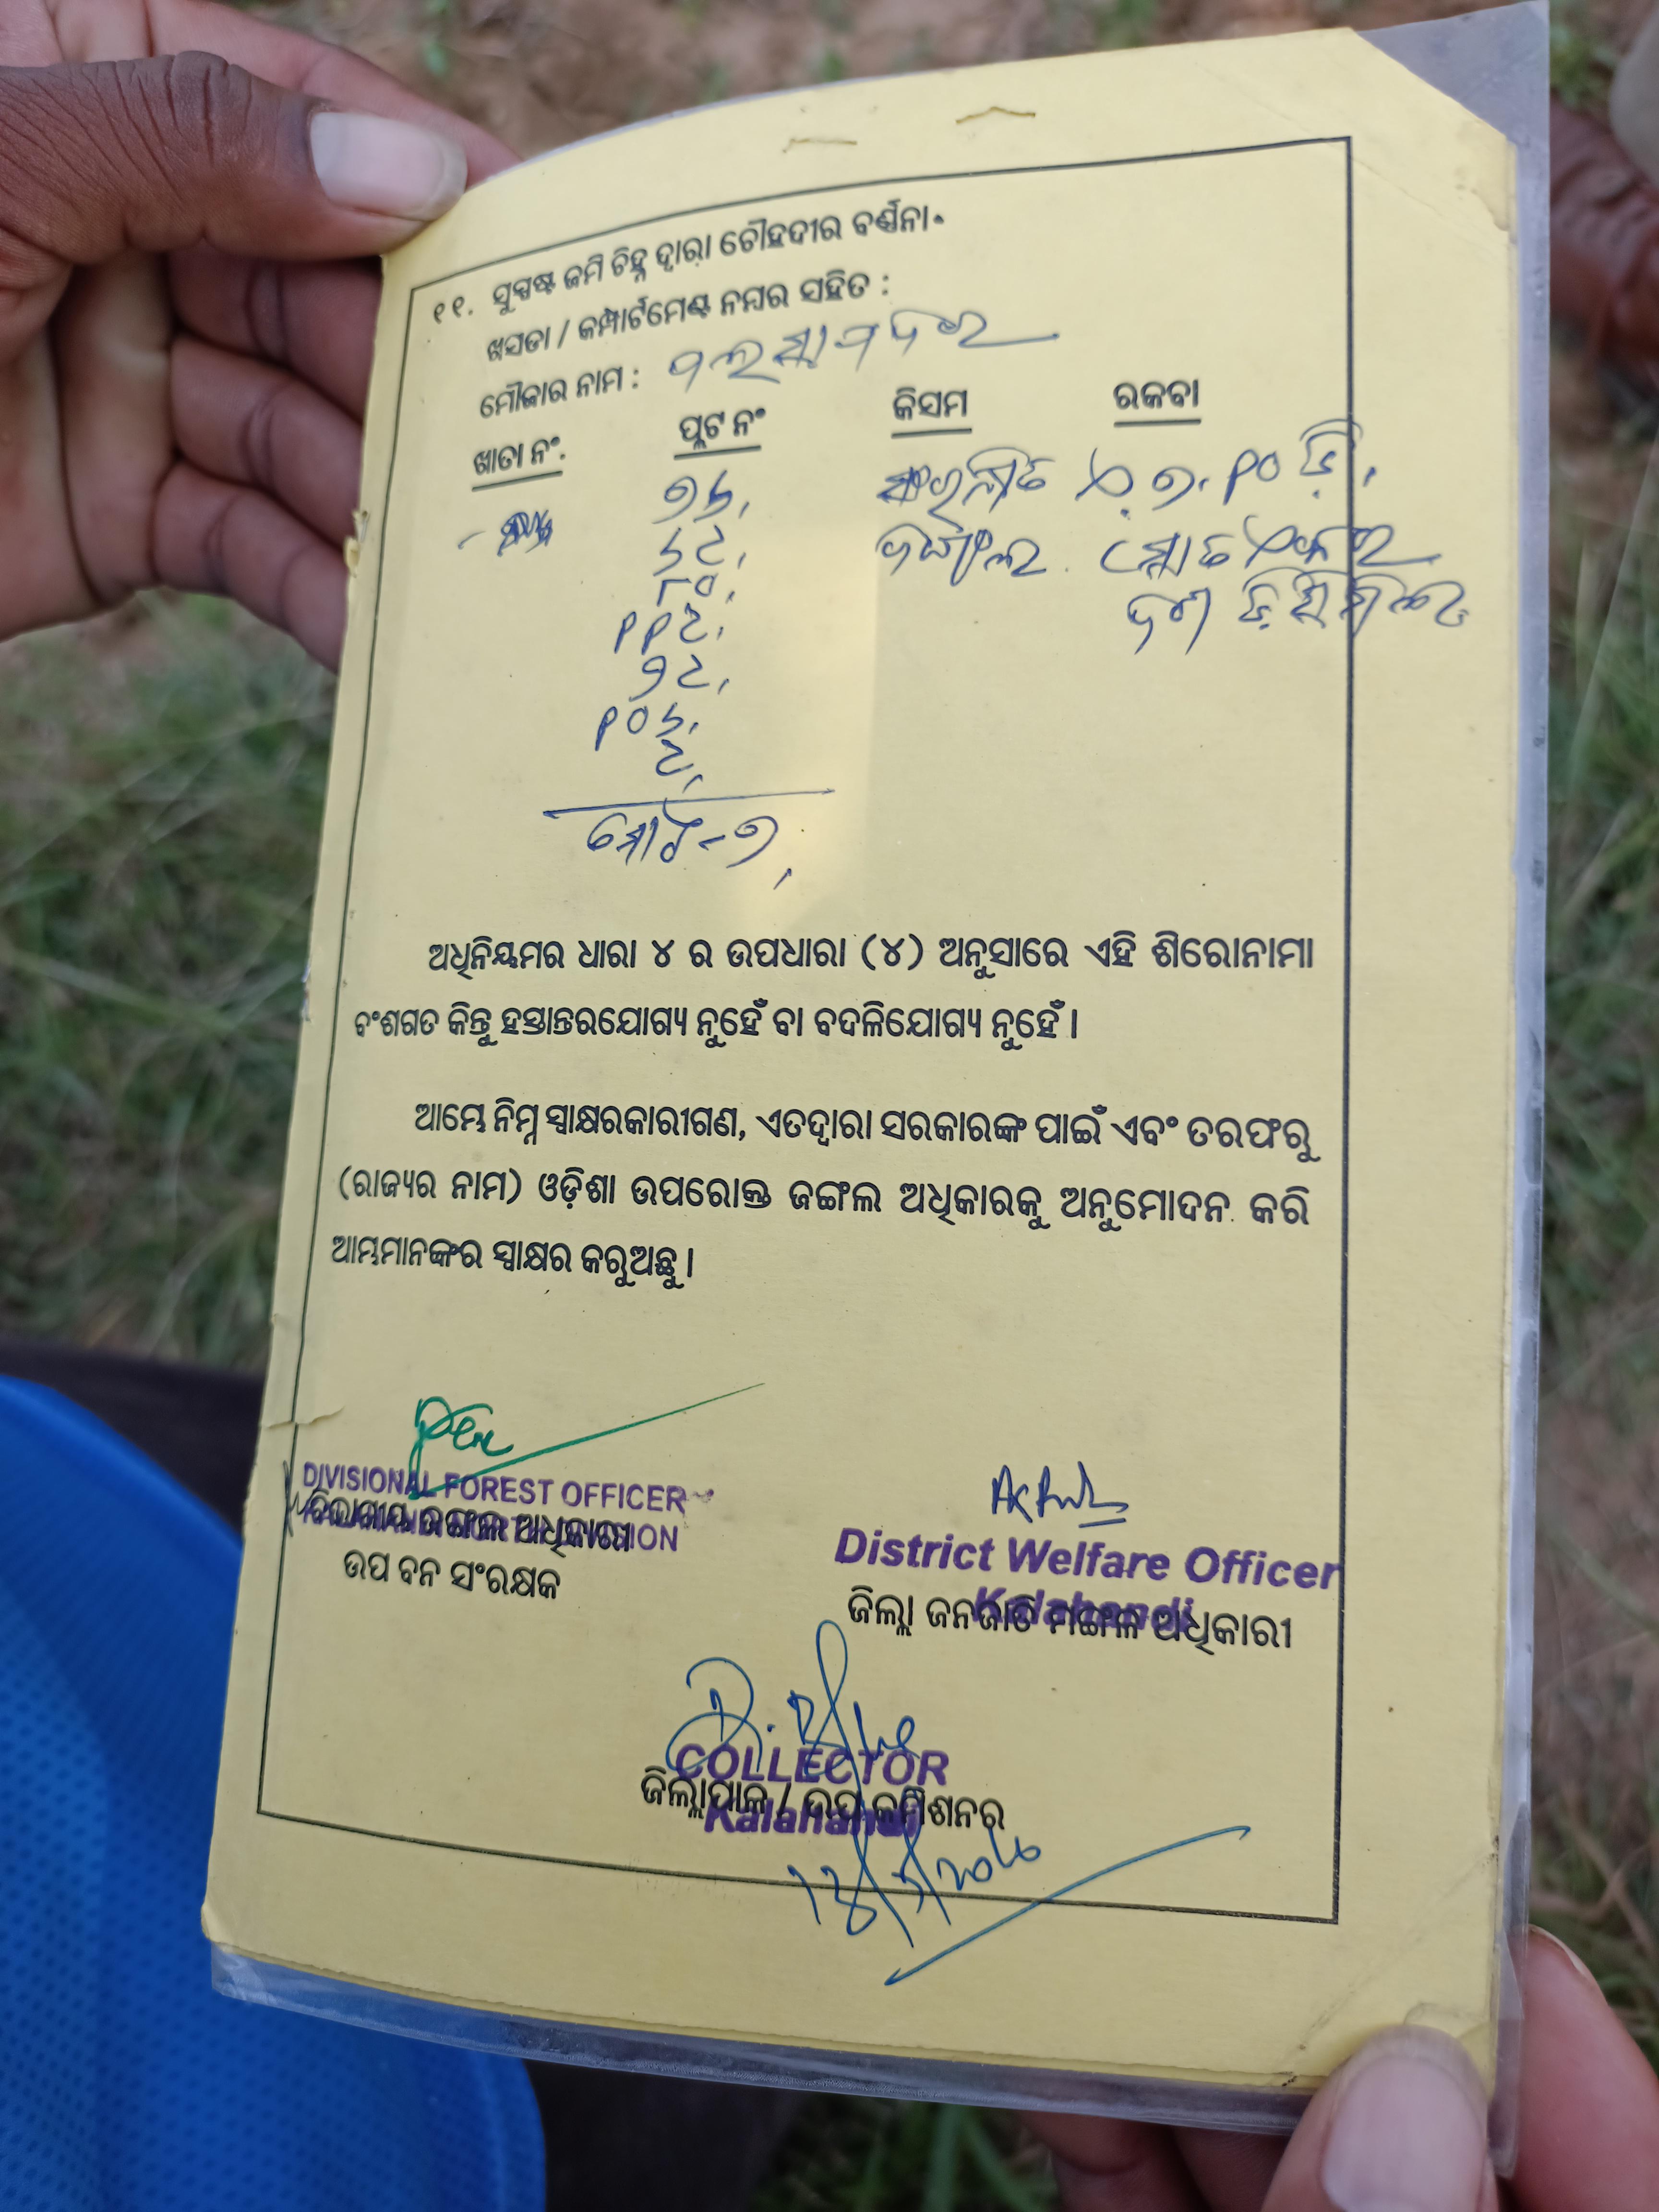 ୧୧. ସୁସ୍ପଷ୍ଟ ଜମି ଚିହ୍ନ ଦ୍ୱାରା ଚୌହଦୀର ବର୍ଣ୍ଣନା
ଖସଡା / କମ୍ପାର୍ଟମେଣ୍ଟ ନମ୍ବର ସହିତ :
ମୌଜାର ନାମ :
ଖାତା ନଂ. ପ୍ଲଟ ନଂ କିସମ ରକବା
୭୫,
୫୯,
୮୦,
୧୧୯,
୨୯,
୧୦୫,
୯,
ମୋଟ - ୭,
ଅଧିନିୟମର ଧାରା ୪ ର ଉପଧାରା (୪) ଅନୁସାରେ ଏହି ଶିରୋନାମା
ବଂଶଗତ କିନ୍ତୁ ହସ୍ତାନ୍ତରଯୋଗ୍ୟ ନୁହେଁ ବା ବଦଳିଯୋଗ୍ୟ ନୁହେଁ ।
ଆମ୍ଭେ ନିମ୍ନ ସ୍ୱାକ୍ଷରକାରୀଗଣ, ଏତଦ୍ୱାରା ସରକାରଙ୍କ ପାଇଁ ଏବଂ ତରଫରୁ
(ରାଜ୍ୟର ନାମ) ଓଡ଼ିଶା ଉପରୋକ୍ତ ଜଙ୍ଗଲ ଅଧିକାରକୁ ଅନୁମୋଦନ କରି
ଆମ୍ଭମାନଙ୍କର ସ୍ୱାକ୍ଷର କରୁଅଛୁ ।
DIVISIONAL FOREST OFFICER
ବିଭାଗୀୟ ଜଙ୍ଗଲ ଅଧିକାରୀ
ଉପ ବନ ସଂରକ୍ଷକ
District Welfare Officer
Kalahandi
ଜିଲ୍ଲା ଜନଜାତି ମଙ୍ଗଳ ଅଧିକାରୀ
COLLECTOR
Kalahandi
ଜିଲ୍ଲାପାଳ / ଉପ କମିଶନର